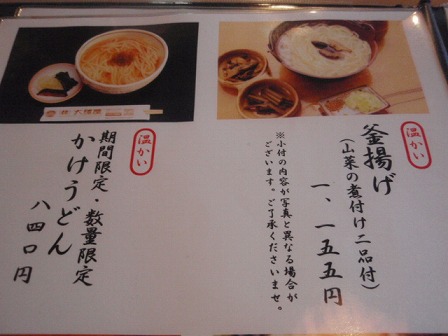 温かい
釜揚げ
（山菜の煮付け二品付）
一、一五五円
※小付の内容が写真と異なる場合が
ございます。ご了承くださいませ。
温かい
期間限定・数量限定
かけうどん
八四〇円